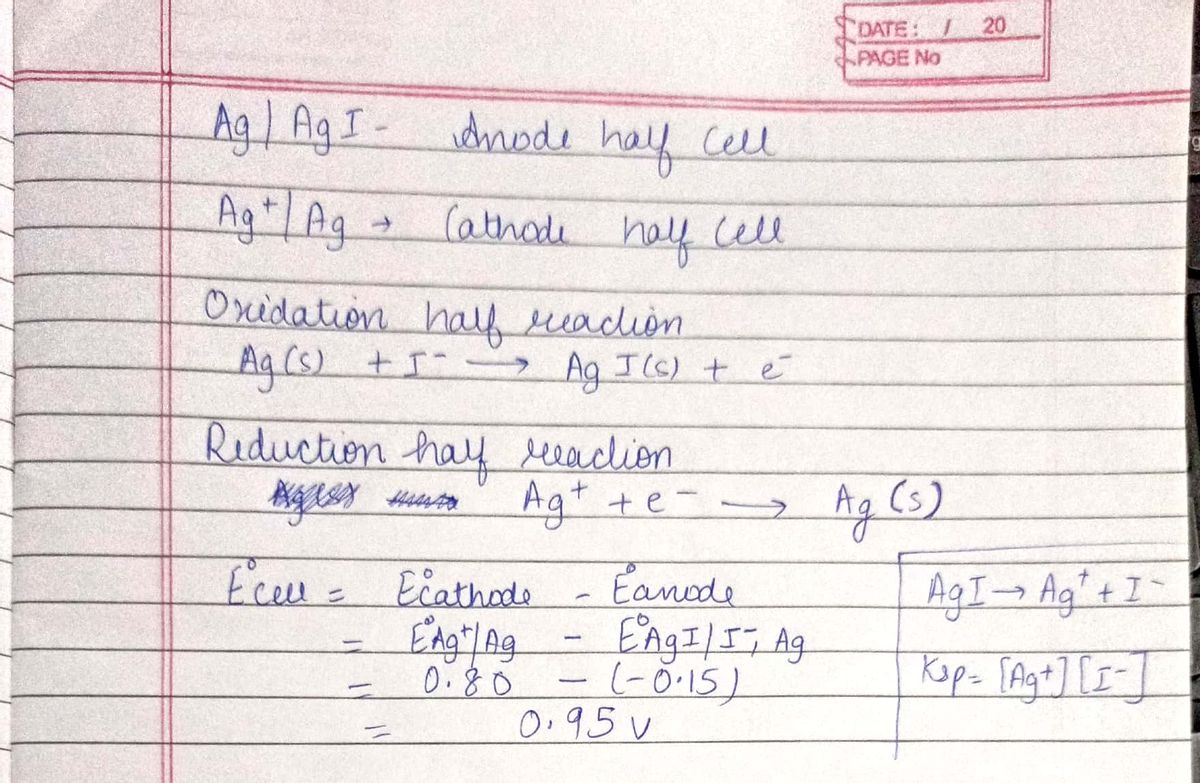 DATE: / 20
PAGE No
Ag | AgI - Anode half cell
Ag⁺ | Ag → Cathode half cell
Oxidation half reaction
Ag (s) + I⁻ ⟶ Ag I (s) + e⁻
Reduction half reaction
Ag⁺ + e⁻ ⟶ Ag (s)
E°cell = E°cathode - E°anode
= E°Ag⁺/Ag - E°AgI/I⁻, Ag
= 0.80 - (-0.15)
= 0.95 V
AgI → Ag⁺ + I⁻
Ksp = [Ag⁺] [I⁻]